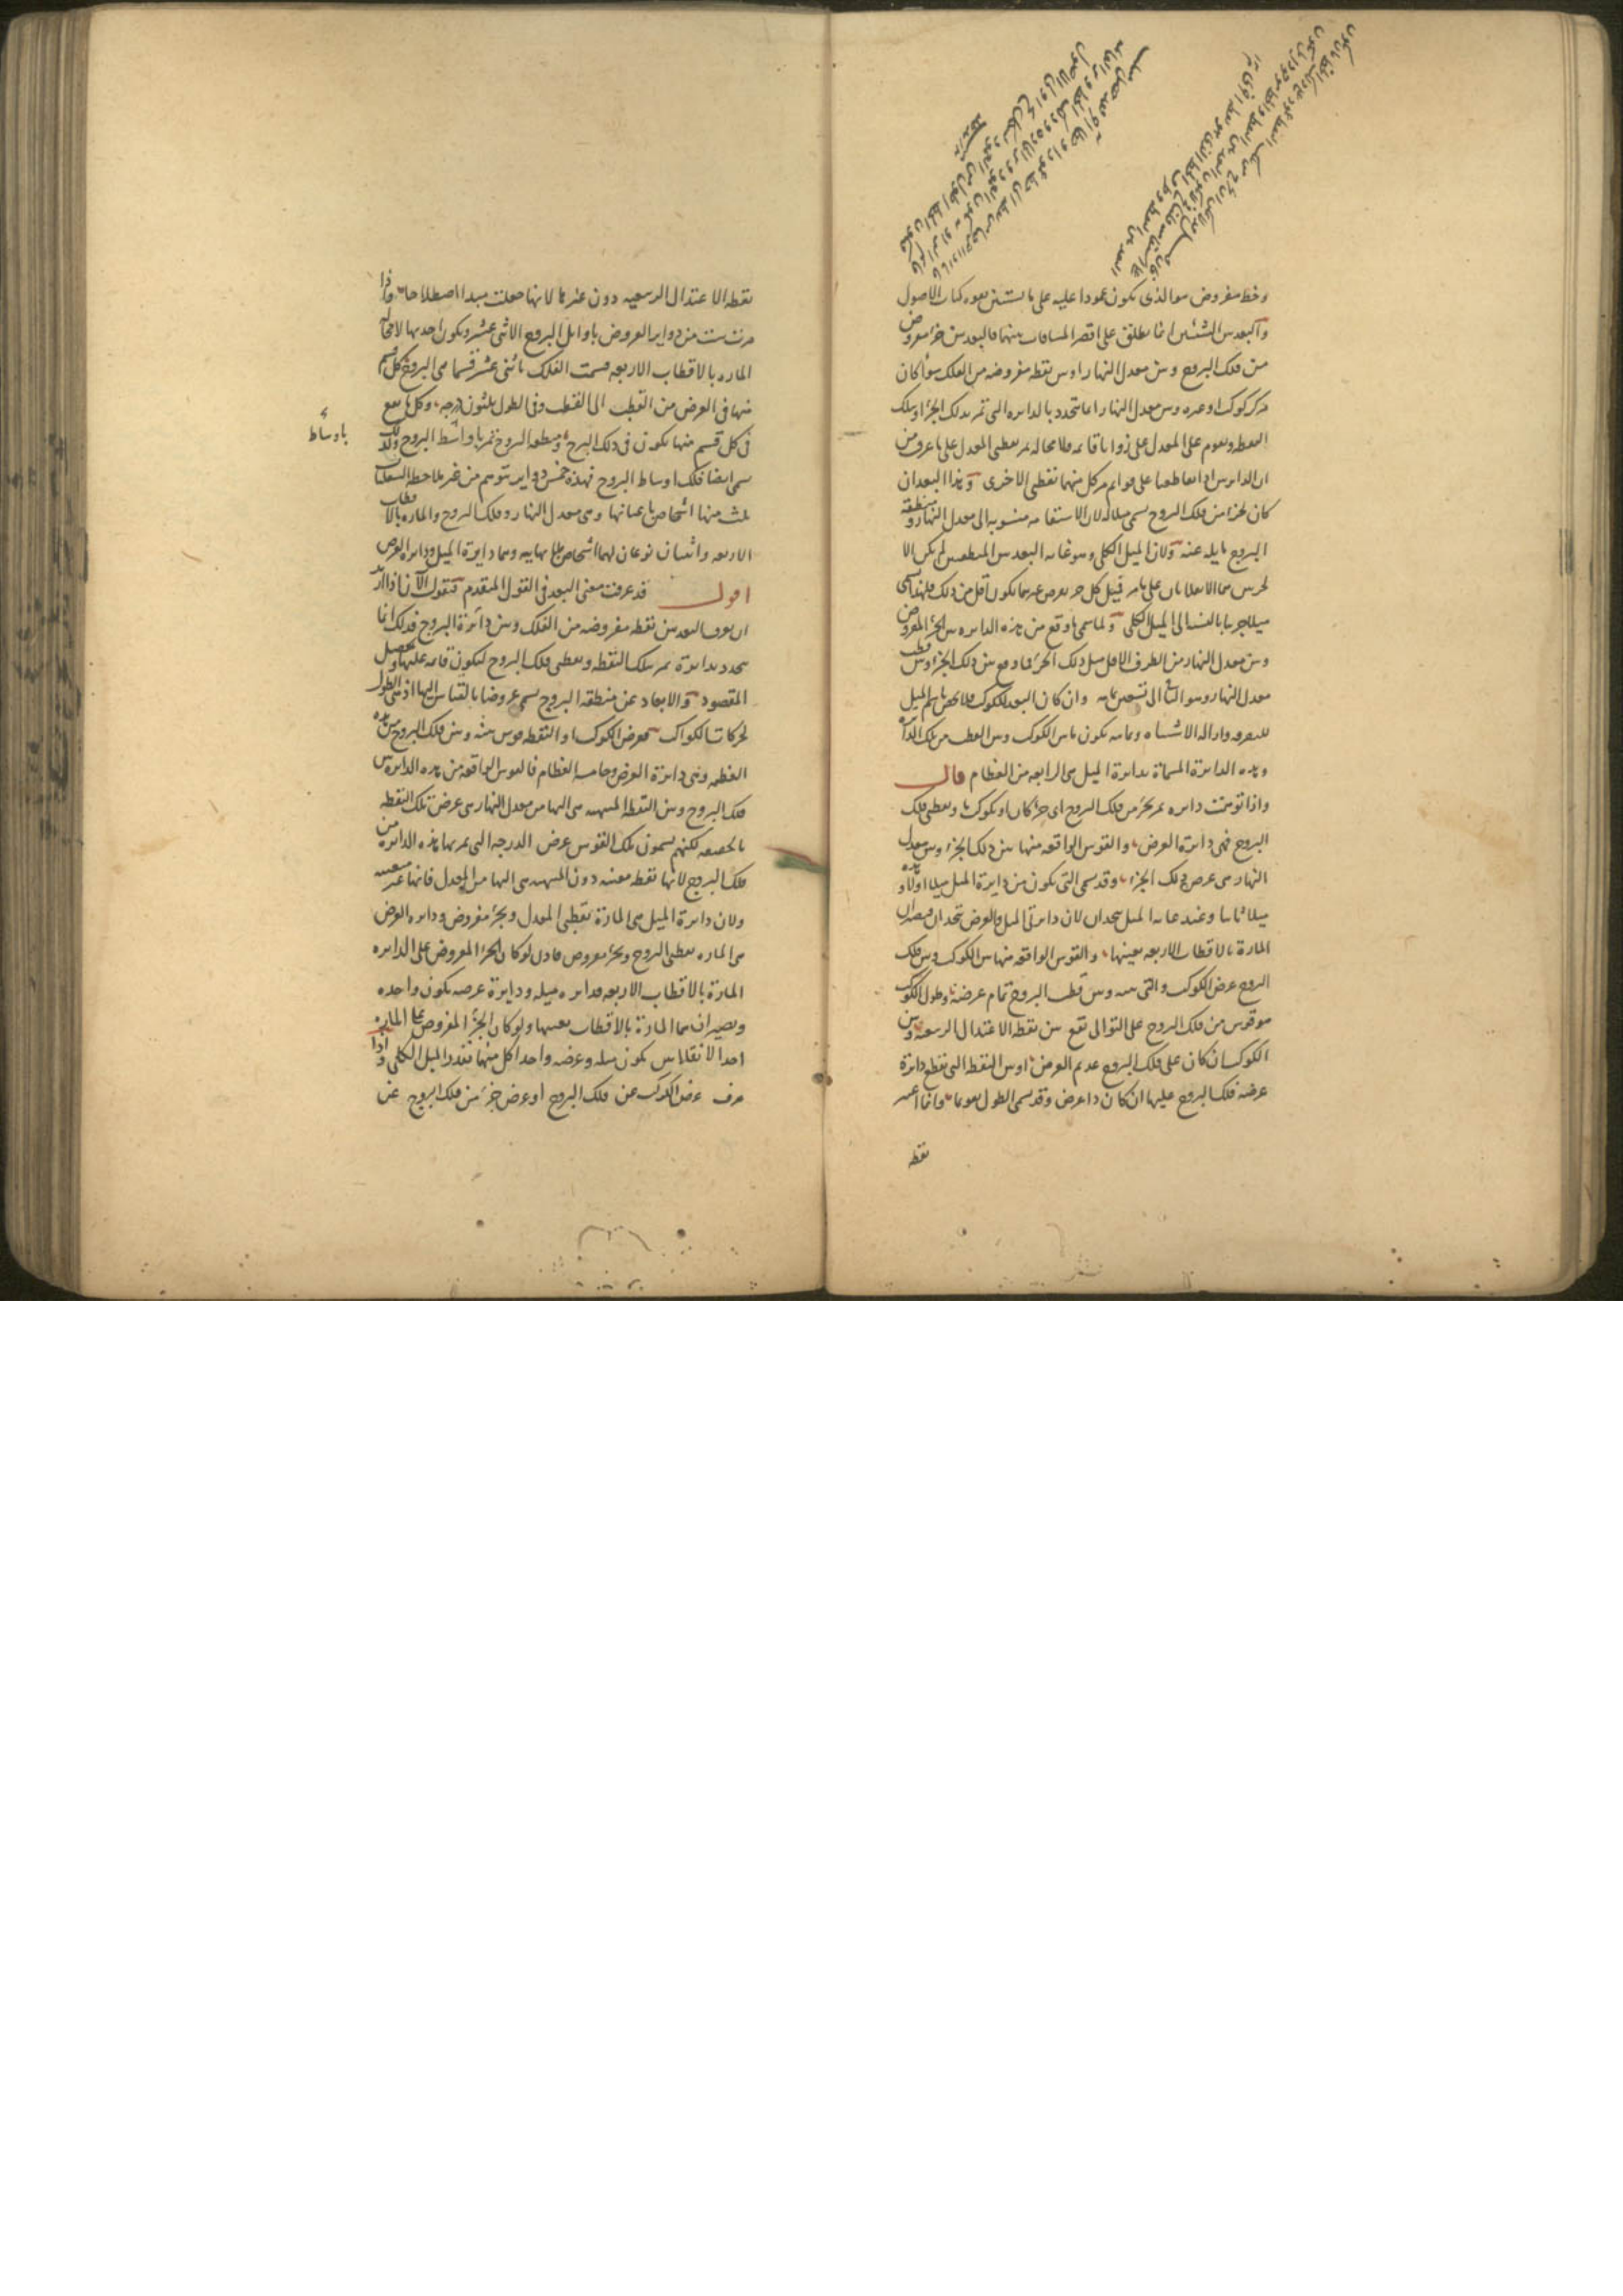 وخط مفروض هو الذى يكون عمودا عليه على ما يستبين بقوه كتاب الاصول
والبعد بين الشيئين انما يطلق على اقصر المسافات بينهما فالبعد بين جزء مفروض
من فلك البروج وبين معدل النهار او بين نقطه مفروضه من الفلك سواء كان
مركز كوكب او غيره وبين معدل النهار انما يتحدد بالدايره التى تمر بذلك الجزء او بتلك
النقطه ويقوم على المعدل على زوايا قائمه فلا محاله يمر بقطبى المعدل على ما عرف من
ان الدايرتين اذا تقاطعتا على قوايم مر كل منهما بقطبى الاخرى وهذا البعد ان
كان لجزء من فلك البروج يسمى ميلا له لان الاستقامه منسوبه الى معدل النهار ومنطقه
البروج مايله عنه ولان الميل الكلى وهو غايه البعد بين المنطقتين لم يكن الا
لجزئين هما الانقلابان على ما مر فميل كل جزء يفرض غيرهما يكون اقل من ذلك فلهذا سمى
ميلا جزيا بالنسبه الى الميل الكلى ولما سمى ما وقع من هذه الدايره بين الجزء المفروض
وبين معدل النهار من الطرف الاقل ميل ذلك الجزء فما وقع بين ذلك الجزء وبين قطب
معدل النهار وهو الباقى الى تسعين تمامه وان كان البعد للكوكب فلا يخص باسم الميل
للتفرقه وازاله الاشتباه وتمامه يكون ما بين الكوكب وبين القطب من تلك الدائره
وهذه الدايرة المسماة بدايرة الميل هى الرابعه من العظام قال
واذا توهمت دايره تمر بجزء من فلك البروج اى جزء كان او بكوكب ما وبقطبى فلك
البروج فهى دايرة العرض والقوس الواقعه منها بين ذلك الجزء وبين معدل
النهار هى عرض ذلك الجزء وقد يسمى التى يكون من دايرة الميل ميلا اولا وهذه
ميلا ثانيا وعند غايه الميل يتحدان لان دايرتى الميل والعرض تتحدان فيصيران
المارة بالاقطاب الاربعه بعينها والقوس الواقعه منها بين الكوكب وبين فلك
البروج عرض الكوكب والتى بينه وبين قطب البروج تمام عرضه وطول الكوكب
هو قوس من فلك البروج على التوالى تقع بين نقطه الاعتدال الربيعيه وبين
الكوكب ان كان على فلك البروج عديم العرض او بين النقطه التى تقطع دايرة
عرضه فلك البروج عليها ان كان ذا عرض وقد يسمى الطول تقويما وانما اعتبر
نقطه
نقطه الاعتدال الربيعيه دون غيرها لانها جعلت مبدا اصطلاحا فاذا
مرت ست من دواير العروض باوايل البروج الاثنى عشر ويكون احديها لا محاله
الماره بالاقطاب الاربعه قسمت الفلك باثنى عشر قسما هى البروج كل قسم
منها فى العرض من القطب الى القطب وفى الطول ثلثون درجه وكل ما يقع
فى كل قسم منها يكون فى ذلك البرج ومنطقه البروج تمر باواسط البروج ولذلك
باوساط
سمى ايضا فلك اوساط البروج فهذه خمس دواير تتوهم من غير ملاحظه السفليات
ثلث منها اشخاص باعيانها وهى معدل النهار وفلك البروج والماره بالاقطاب
الاربعه واثنتان نوعان لهما اشخاص بلا نهايه وهما دايرة الميل ودايره العرض
اقول قد عرفت معنى البعد فى القول المتقدم فنقول الآن اذا اريد
ان يعرف البعد بين نقطه مفروضه من الفلك وبين دائرة البروج فذلك انما
يتحدد بدايرة تمر بتلك النقطه وبقطبى فلك البروج لتكون قائمه عليها ويحصل
المقصود والابعاد عن منطقه البروج يسمى عروضا بالقياس اليها اذ هى الطول
لحركات الكواكب فعرض الكوكب او النقطه قوس بينه وبين فلك البروج من هذه
العظيمه وهى دايرة العرض وخامسه العظام فالقوس الواقعه من هذه الدايره بين
فلك البروج وبين النقطه المنتهيه هى اليها من معدل النهار هى عرض تلك النقطه
بالحقيقه لكنهم يسمون تلك القوس عرض الدرجه التى تمر بها هذه الدايرة من
فلك البروج لانها نقطه معينه دون المنتهيه هى اليها من المعدل فانها غير معينه
ولان دايرة الميل هى المارة بقطبى المعدل وبجزء مفروض ودايره العرض
هى الماره بقطبى البروج وبجزء مفروض فاذن لو كان الجزء المفروض على الدايره
المارة بالاقطاب الاربعه فدايره ميله ودايرة عرضه يكون واحده
ويصيران هما المارة بالاقطاب بعينها ولو كان الجزء المفروض على الماره
احد الانقلابين يكون ميله وعرضه واحدا كل منهما بقدر الميل الكلى واذا
عرف عرض الكوكب عن فلك البروج او عرض جزء من فلك البروج عن